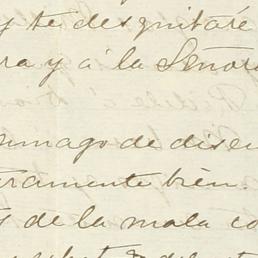 y te desquitaré
ra y á la Señor
umago de disen
aramente bien.
s de la mala co